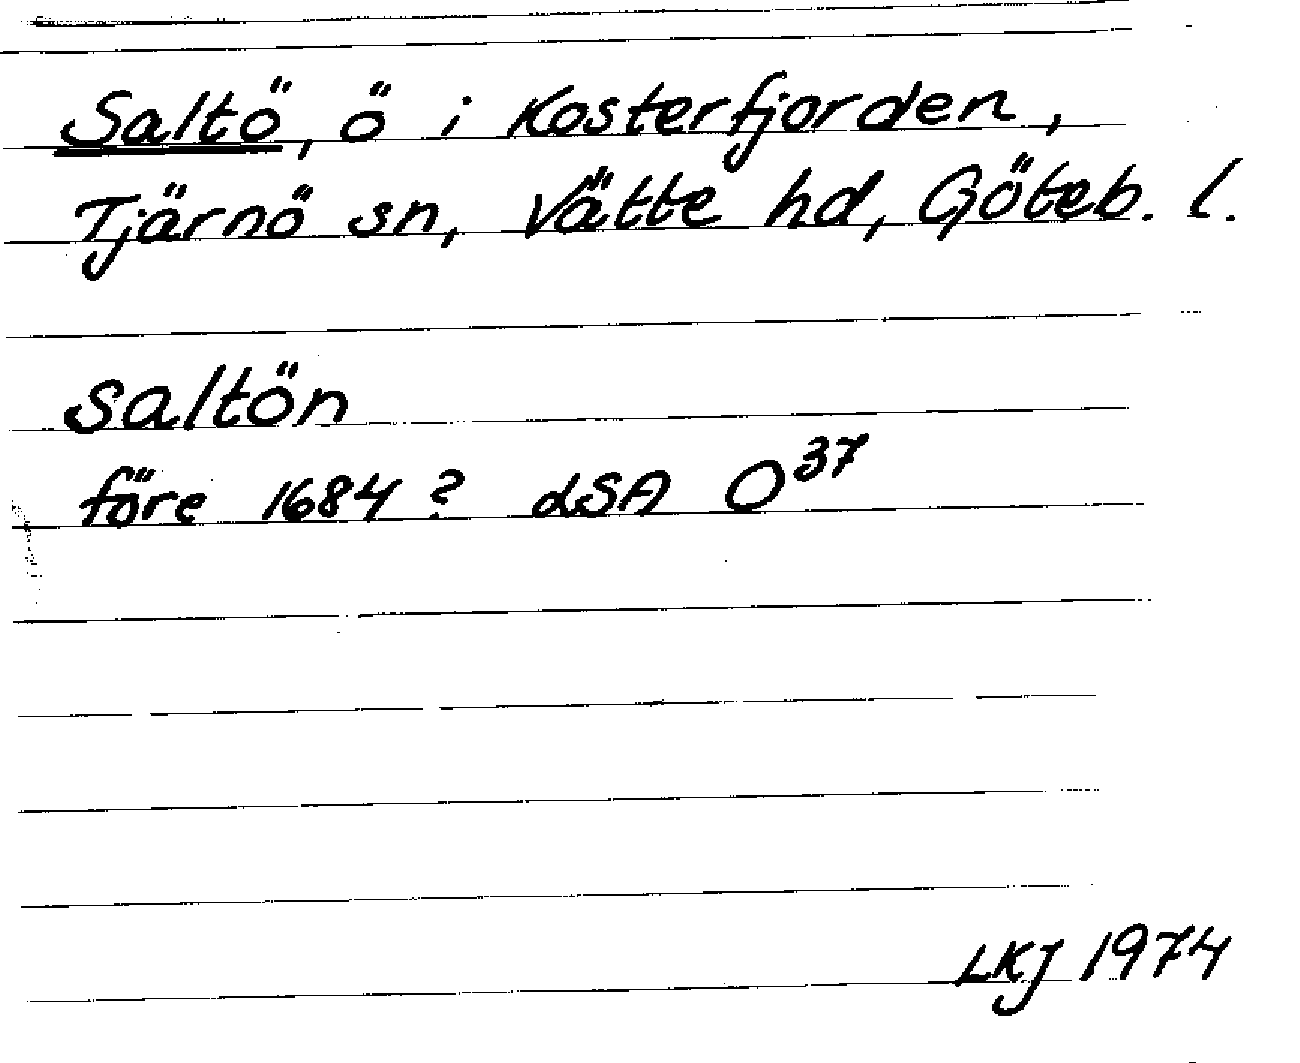 Saltö, ö i Kosterfjorden,
Tjärnö sn, Vätte hd, Göteb. l.
Saltön
före 1684? LSA O³⁷
LKJ 1974